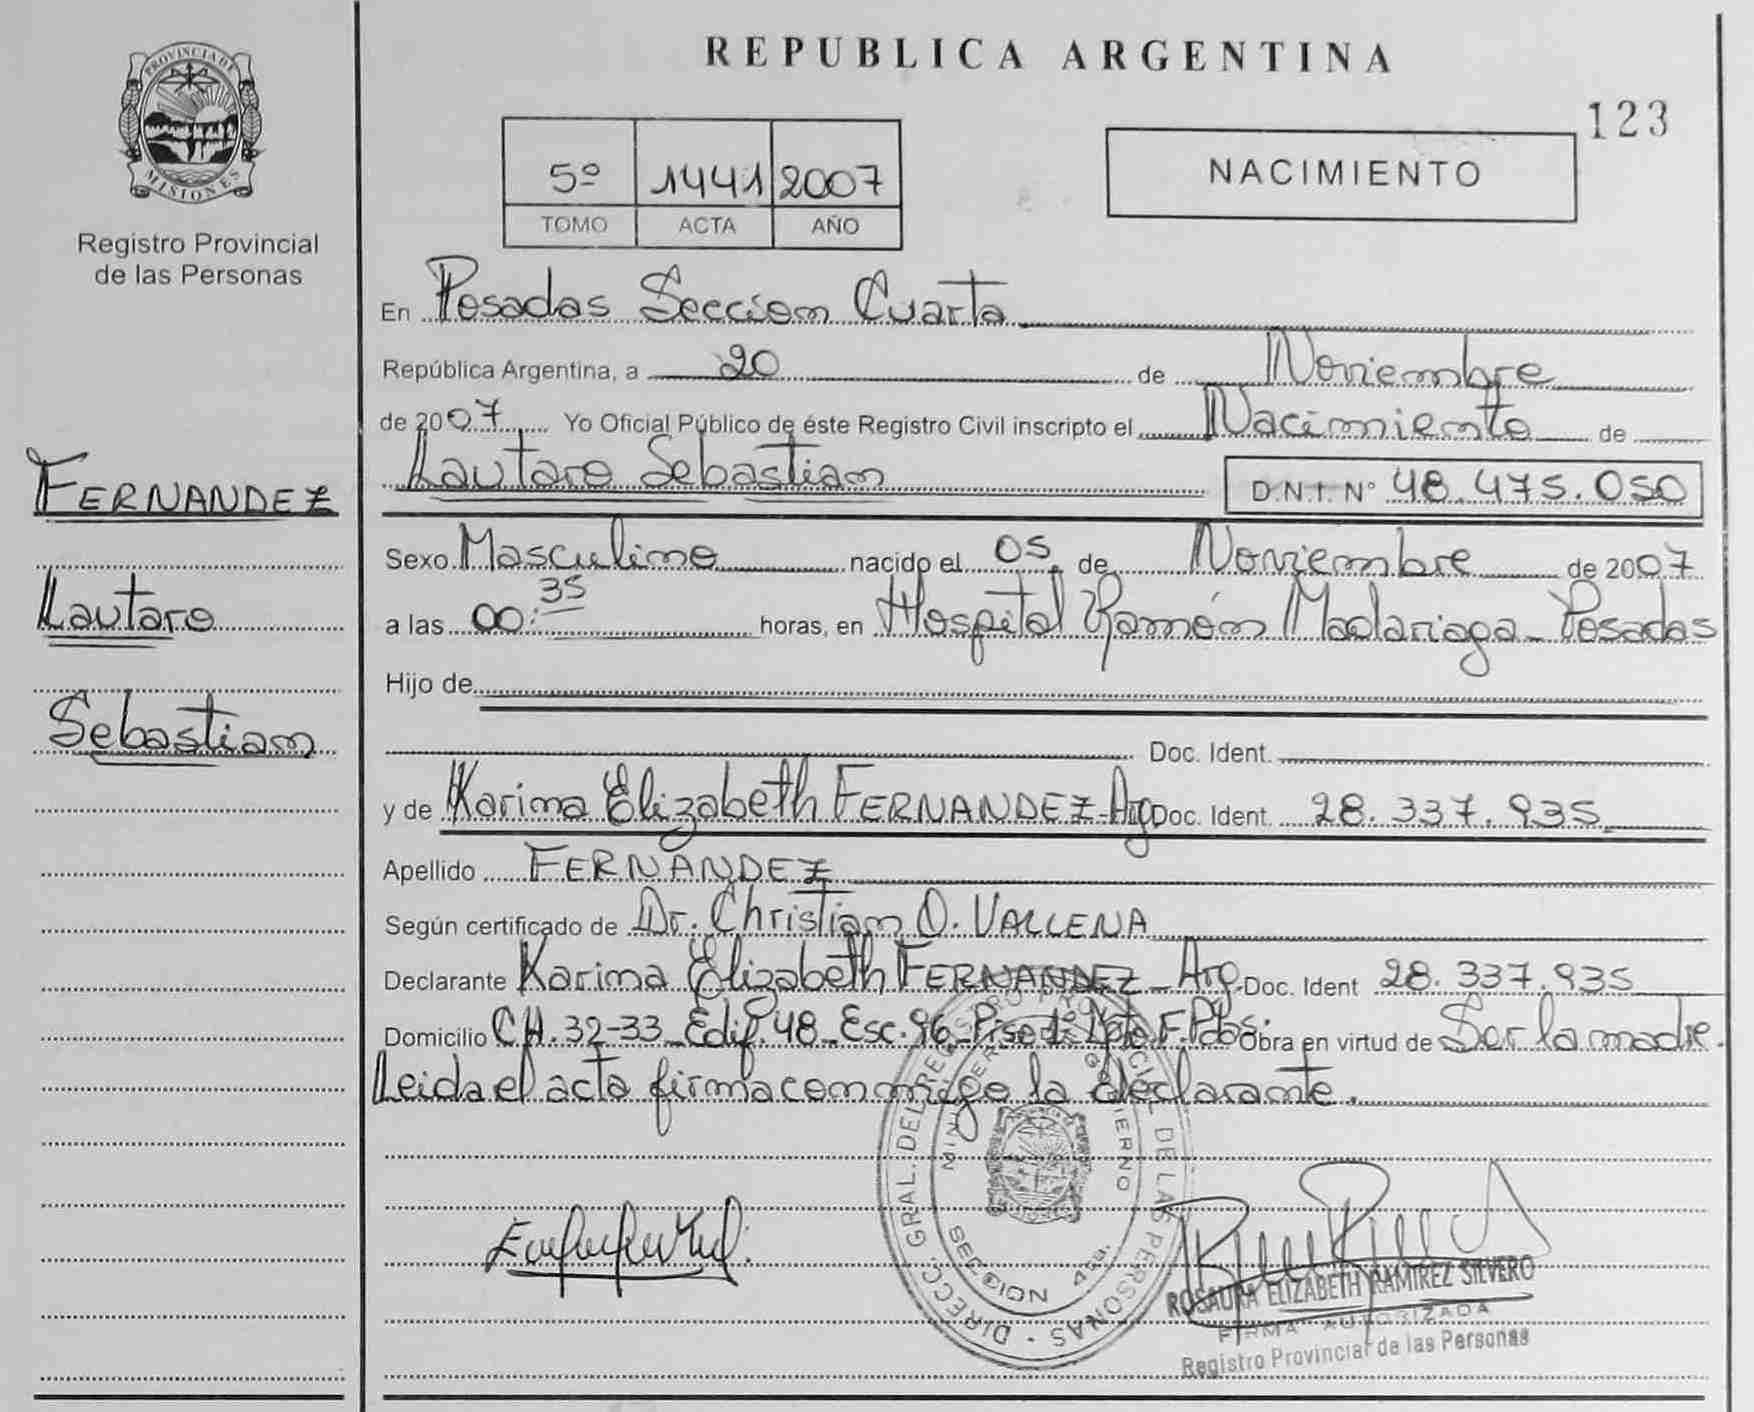 PROVINCIA DE
MISIONES
Registro Provincial
de las Personas
FERNANDEZ
Lautaro
Sebastian
REPUBLICA ARGENTINA
123
5º 1441 2007
TOMO ACTA AÑO
NACIMIENTO
En Posadas Seccion Cuarta
República Argentina, a 20 de Noviembre
de 2007 Yo Oficial Público de éste Registro Civil inscripto el Nacimiento de
Lautaro Sebastian D.N.I. Nº 48.475.050
Sexo Masculino nacido el 05 de Noviembre de 2007
a las 00:35 horas, en Hospital Ramón Madariaga - Posadas
Hijo de
Doc. Ident.
y de Karina Elizabeth FERNANDEZ-Arg Doc. Ident. 28.337.935
Apellido FERNANDEZ
Según certificado de Dr. Christian O. VALLENA
Declarante Karina Elizabeth FERNANDEZ - Arg. Doc. Ident 28.337.935
Domicilio CH. 32-33 Edif. 48 Esc. 96 Dpto F. Pdas. Obra en virtud de Ser la madre.
Leida el acta firma conmigo la declarante.
DIRECC. GRAL. DEL REGISTRO PROVINCIAL DE LAS PERSONAS
SECCION 4ta.
ROSAURA ELIZABETH RAMIREZ SILVERO
FIRMA AUTORIZADA
Registro Provincial de las Personas